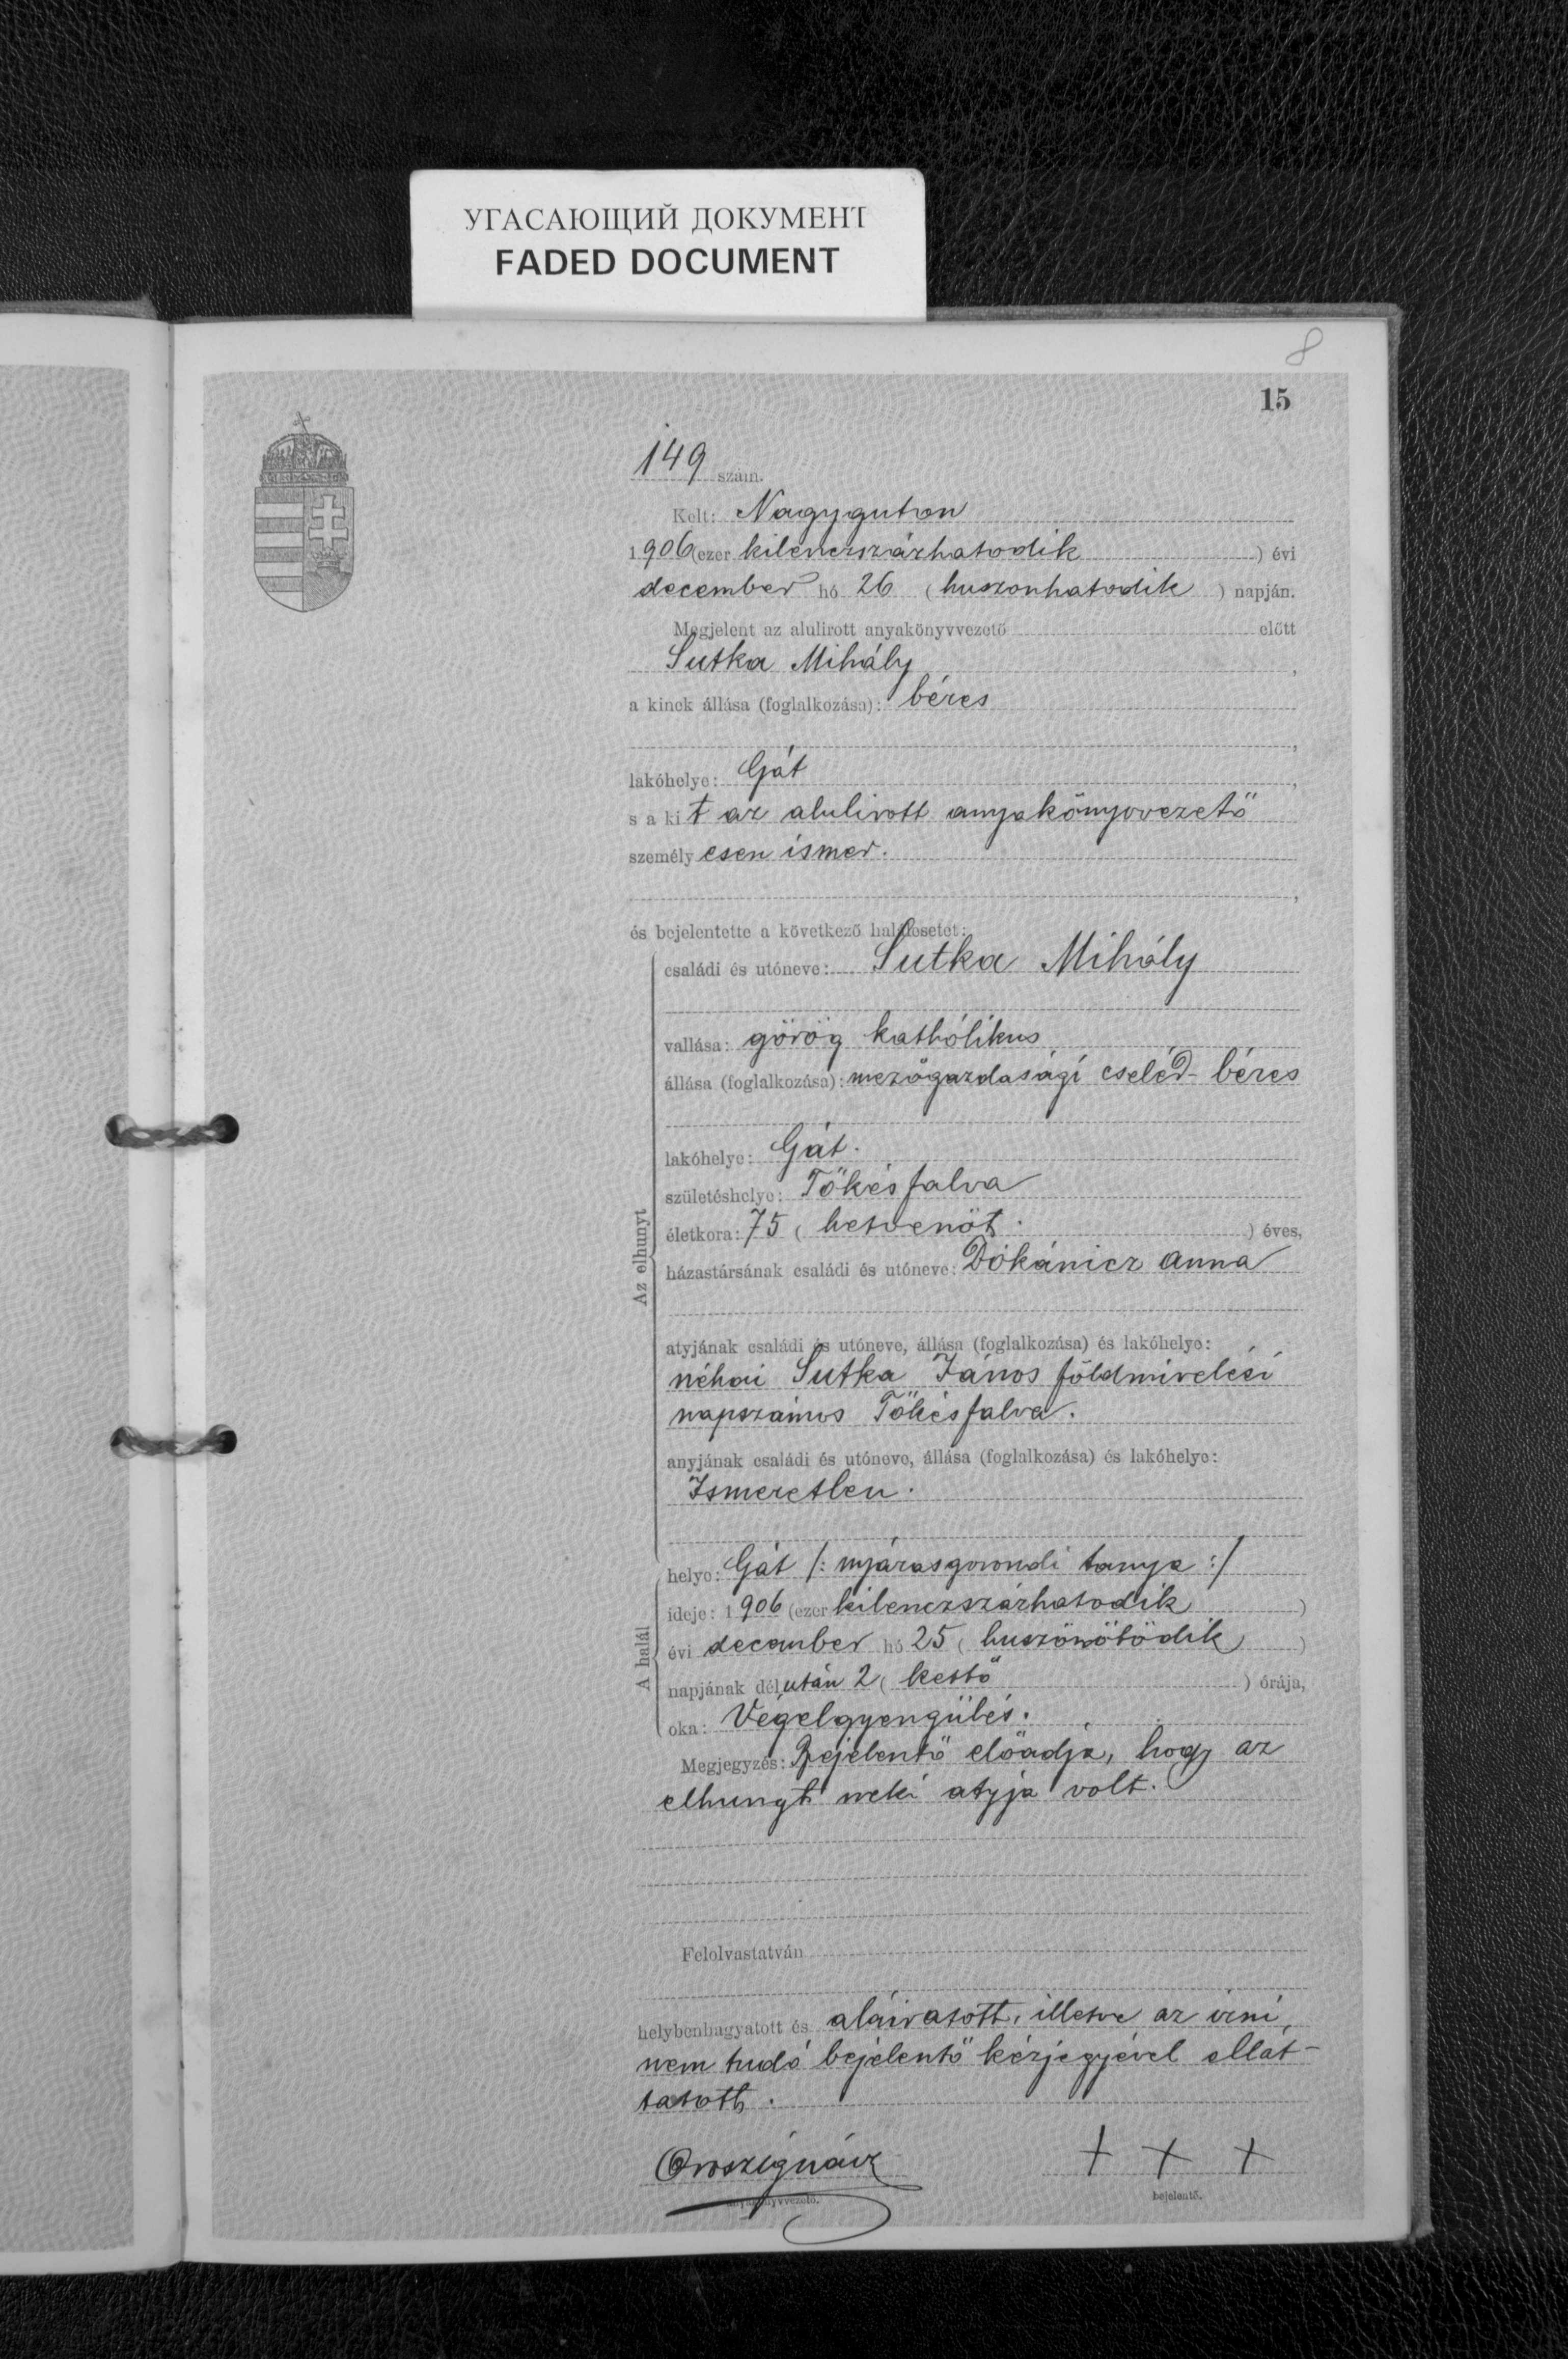 УГАСАЮЩИЙ ДОКУМЕНТ
FADED DOCUMENT
8
15
149 szám.
Kelt: Nagyguton
1906 (ezer kilenczszázhatodik ) évi
december hó 26 ( huszonhatodik ) napján.
Megjelent az alulirott anyakönyvvezető előtt
Sutka Mihály,
a kinek állása (foglalkozása): béres
,
lakóhelye: Gát,
s a kit az alulirott anyakönyvvezető
személyesen ismer.
,
és bejelentette a következő halálesetet:
Az elhunyt
családi és utóneve: Sutka Mihály
vallása: görög kathólikus
állása (foglalkozása): mezőgazdasági cseléd-béres
lakóhelye: Gát.
születéshelye: Tőkésfalva
életkora: 75 ( hetvenöt. ) éves,
házastársának családi és utóneve: Dókánicz Anna
atyjának családi és utóneve, állása (foglalkozása) és lakóhelye:
néhai Sutka János földmivelési
napszámos Tőkésfalva.
anyjának családi és utóneve, állása (foglalkozása) és lakóhelye:
Ismeretlen.
A halál
helye: Gát /: nyárasgorondi tanya :/
ideje: 1906 (ezer kilenczszázhatodik )
évi december hó 25 ( huszönötödik )
napjának délután 2 ( kettő ) órája,
oka: Végelgyengülés.
Megjegyzés: Bejelentő előadja, hogy az
elhungt neki atyja volt.
Felolvastatván
helybenhagyatott és aláiratott, illetve az irni
nem tudó bejelentő kézjegyével ellát-
tatott.
Orosz Ignácz + + +
anyakönyvvezető. bejelentő.